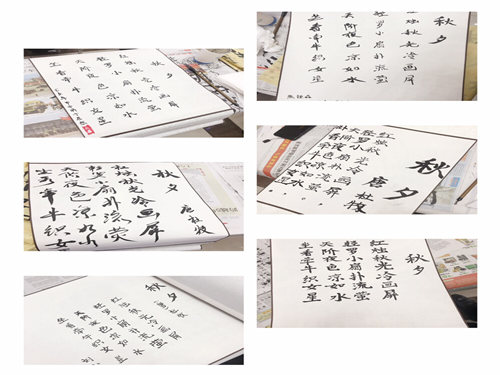 秋夕
红烛秋光冷画屏
轻罗小扇扑流萤
天阶夜色凉如水
坐看牵牛织女星
秋夕
唐杜牧
红烛秋光冷画屏
轻罗小扇扑流萤
天阶夜色凉如水
坐看牵牛织女星
秋夕
唐杜牧
红烛秋光冷画屏
轻罗小扇扑流萤
天阶夜色凉如水
坐看牵牛织女星
秋夕
烛秋光冷画屏
轻罗小扇扑流萤
天阶夜色凉如水
坐看牵牛织女星
秋夕
唐杜牧
红烛秋光冷画屏
轻罗小扇扑流萤
天阶夜色凉如水
卧看牵牛织女星
秋夕
红烛秋光冷画屏
轻罗小扇扑流萤
天阶夜色凉如水
坐看牵牛织女星